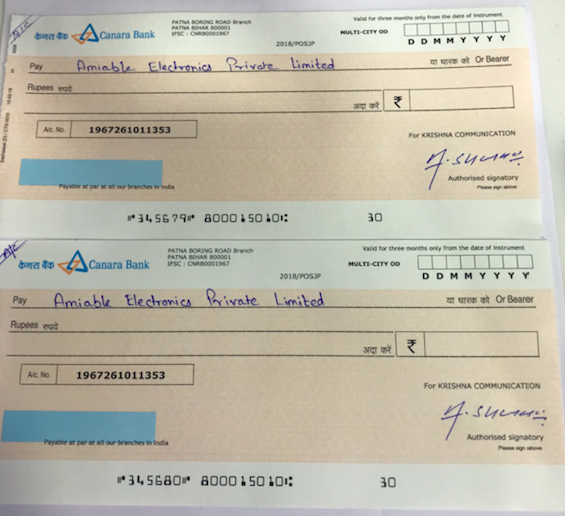 A/C
केनरा बैंक Canara Bank
PATNA BORING ROAD Branch
PATNA BIHAR 800001
IFSC : CNRB0001967
2018/POSJP
Valid for three months only from the date of instrument
MULTI-CITY OD
D D M M Y Y Y Y
Pay Amiable Electronics Private Limited या धारक को Or Bearer
Rupees रुपये
अदा करें ₹
A/c. No. 1967261011353
For KRISHNA COMMUNICATION
Authorised signatory
Please sign above
Payable at par at all our branches in India
⑈345679⑈ 800015010⑆ 30
A/C
केनरा बैंक Canara Bank
PATNA BORING ROAD Branch
PATNA BIHAR 800001
IFSC : CNRB0001967
2018/POSJP
Valid for three months only from the date of instrument
MULTI-CITY OD
D D M M Y Y Y Y
Pay Amiable Electronics Private Limited या धारक को Or Bearer
Rupees रुपये
अदा करें ₹
A/c. No. 1967261011353
For KRISHNA COMMUNICATION
Authorised signatory
Please sign above
Payable at par at all our branches in India
⑈345680⑈ 800015010⑆ 30